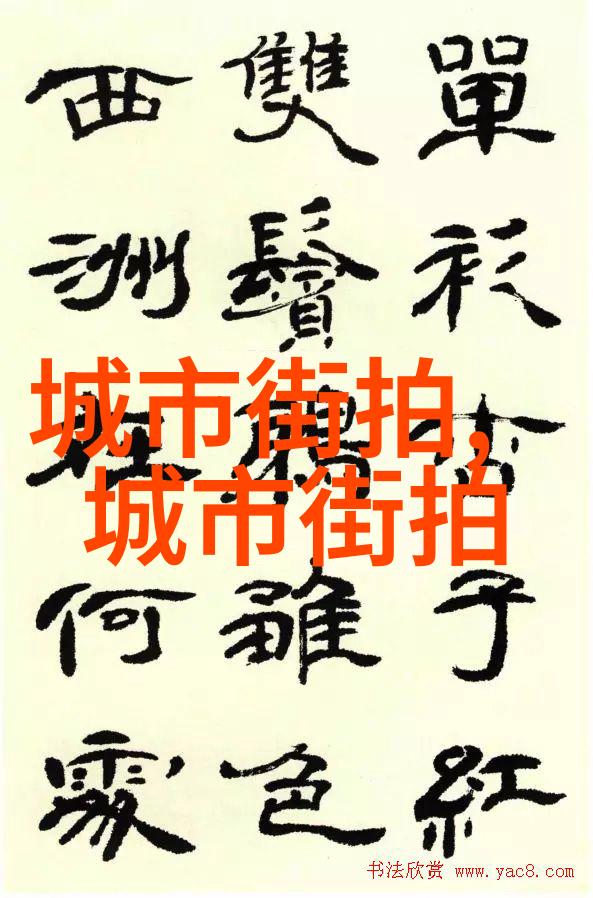 單衫杏子紅
雙鬢鴉雛色
西洲在何處
城市街拍,
城市街拍
书法欣赏 www.yac8.com